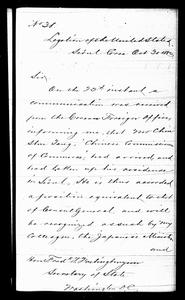 No 31
Legation of the United States
Seoul Corea Oct 31 1883
Sir
On the 20th instant a
communication was received
from the Corean Foreign Office,
informing me that Mr Chen
Shu Tang, "Chinese Commissioner
of Commerce," had arrived and
had taken up his residence
in Seoul. He is thus accorded
a position equivalent to that
of Consul General, and will
be recognized as such by my
Colleague, the Japanese Minister
and
Hon. Fred. T. Frelinghuysen
Secretary of State
Washington D.C.